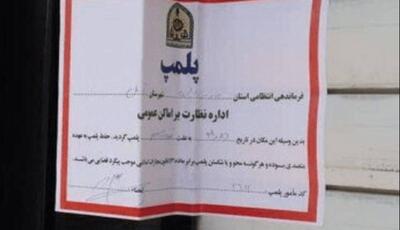 پلمپ
فرماندهی انتظامی استان شهرستان
اداره نظارت بر اماکن عمومی
بدین وسیله این مکان در تاریخ به علت پلمپ گردید. حفظ پلمپ به عهده
متصدی بوده و هرگونه محو و یا شکستن پلمپ برابر ماده قانون مجازات اسلامی موجب پیگرد قضایی می باشد.
کد مأمور پلمپ : امضاء